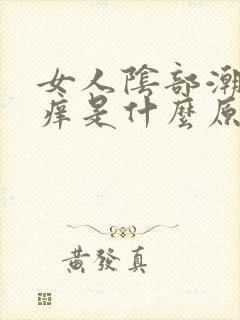 女人陰部潮
痒是什麼原
黃發真